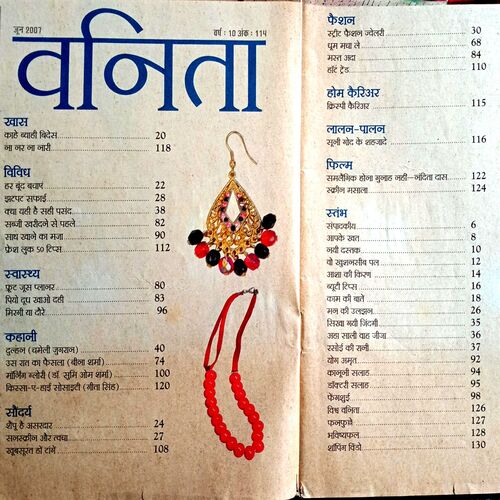 जून 2007
वर्ष : 10 अंक : 114
वनिता
खास
काहे ब्याही बिदेस 20
ना नर ना नारी 118
विविध
हर बूंद बचाएं 22
झटपट सफाई 28
क्या यही है सही पसंद 38
सब्जी खरीदने से पहले 82
साथ खाने का मजा 90
फ्रेश लुक 50 टिप्स 112
स्वास्थ्य
फ्रूट जूस प्लानर 80
पियो दूध खाओ दही 83
मिरगी या दौरे 96
कहानी
दुल्हन (चमेली जुगरान) 40
उस रात का फैसला (बीना शर्मा) 74
मॉर्निंग ग्लोरी (डॉ. सूमि ओम शर्मा) 100
किस्सा-ए-हाई सोसाइटी (गीता सिंह) 120
सौंदर्य
शैंपू है असरदार 24
सनस्क्रीन और त्वचा 27
खूबसूरत हों टांगें 108
फैशन
स्ट्रीट फैशन ज्वेलरी 30
धूम मचा ले 68
मस्त अदा 84
हॉट ट्रेंड 110
होम कैरिअर
क्रिस्पी कैरिअर 115
लालन-पालन
सूनी गोद के शहजादे 104
फिल्म
समलैंगिक होना गुनाह नहीं—नंदिता दास 122
स्क्रीन मसाला 124
स्तंभ
संपादकीय 6
आपके खत 8
नयी दस्तक 10
वो खुशनसीब पल 12
आशा की किरण 14
ब्यूटी टिप्स 16
काम की बातें 18
मन की उलझन 26
सिरखा गयी जिंदगी 35
जहा साली वाह जीजा 36
रसोई की रानी 37
योग अमृत 92
कानूनी सलाह 94
डॉक्टरी सलाह 95
फेंगशुई 98
विश्व वनिता 126
फनफुर्ने 127
भविष्यफल 128
शॉपिंग विंडो 130